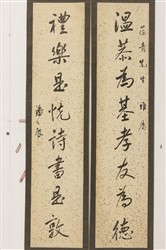 溫恭為基孝友為德
禮樂是悅詩書是敦